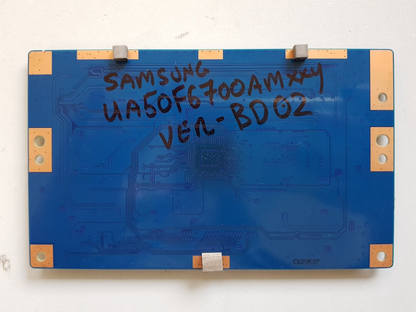 SAMSUNG
UA50F6700AMXXY
VER-BD02